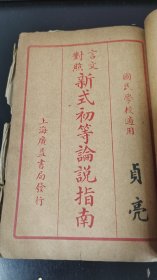 國民學校適用
言文
對照
新式初等論說指南
上海廣益書局發行
貞亮